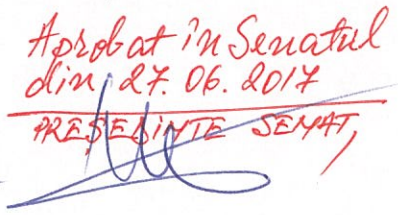 Aprobat în Senatul
din 27.06.2017
PREȘEDINTE SENAT,